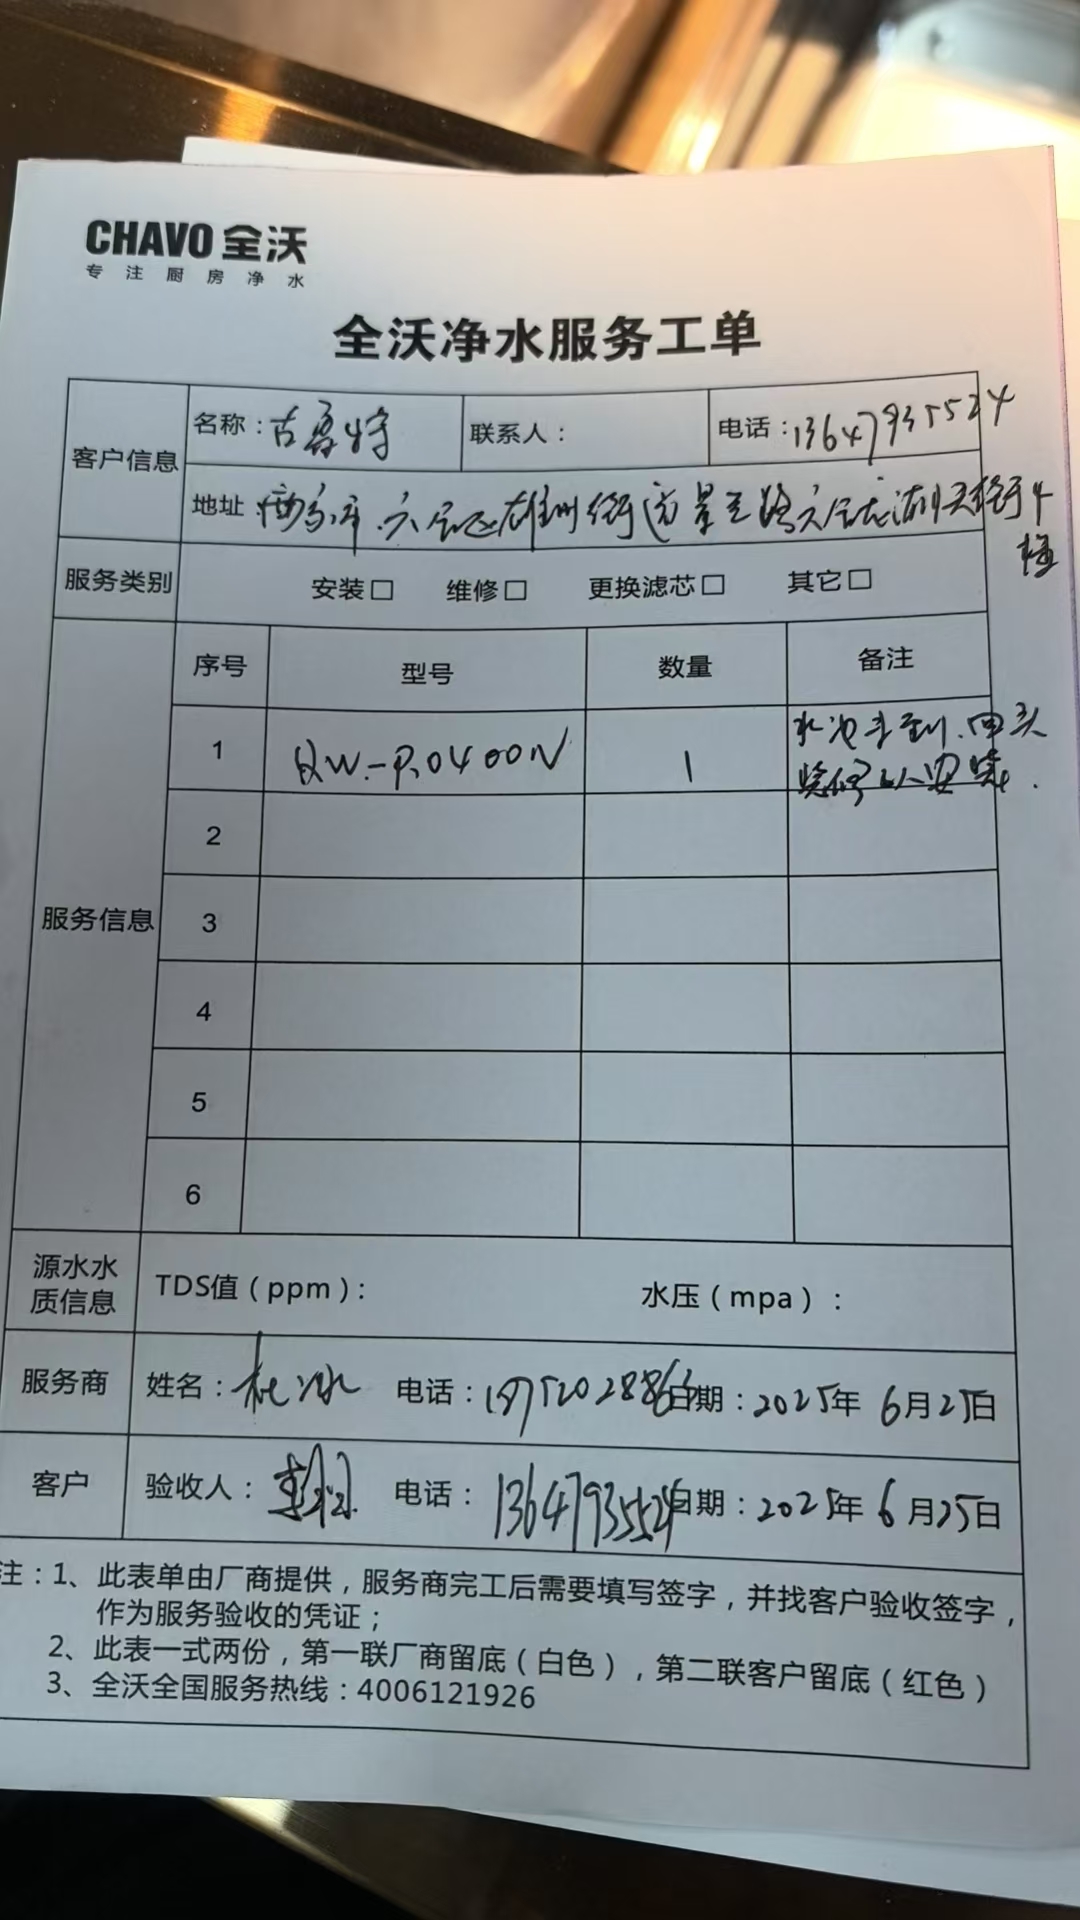 CHAVO 全沃
专注厨房净水
全沃净水服务工单
客户信息
名称：古磊特 联系人： 电话：13647935524
地址 六合区雄州街道
服务类别 安装□ 维修□ 更换滤芯□ 其它□
服务信息
序号 型号 数量 备注
1 QW-RO400N 1 水池未到.回头
安装.
2
3
4
5
6
源水水质信息 TDS值（ppm）： 水压（mpa）：
服务商 姓名：杜冰 电话： 日期：2025年6月25日
客户 验收人： 电话：13647935524 日期：2025年6月25日
注：1、此表单由厂商提供，服务商完工后需要填写签字，并找客户验收签字，
作为服务验收的凭证；
2、此表一式两份，第一联厂商留底（白色），第二联客户留底（红色）
3、全沃全国服务热线：4006121926